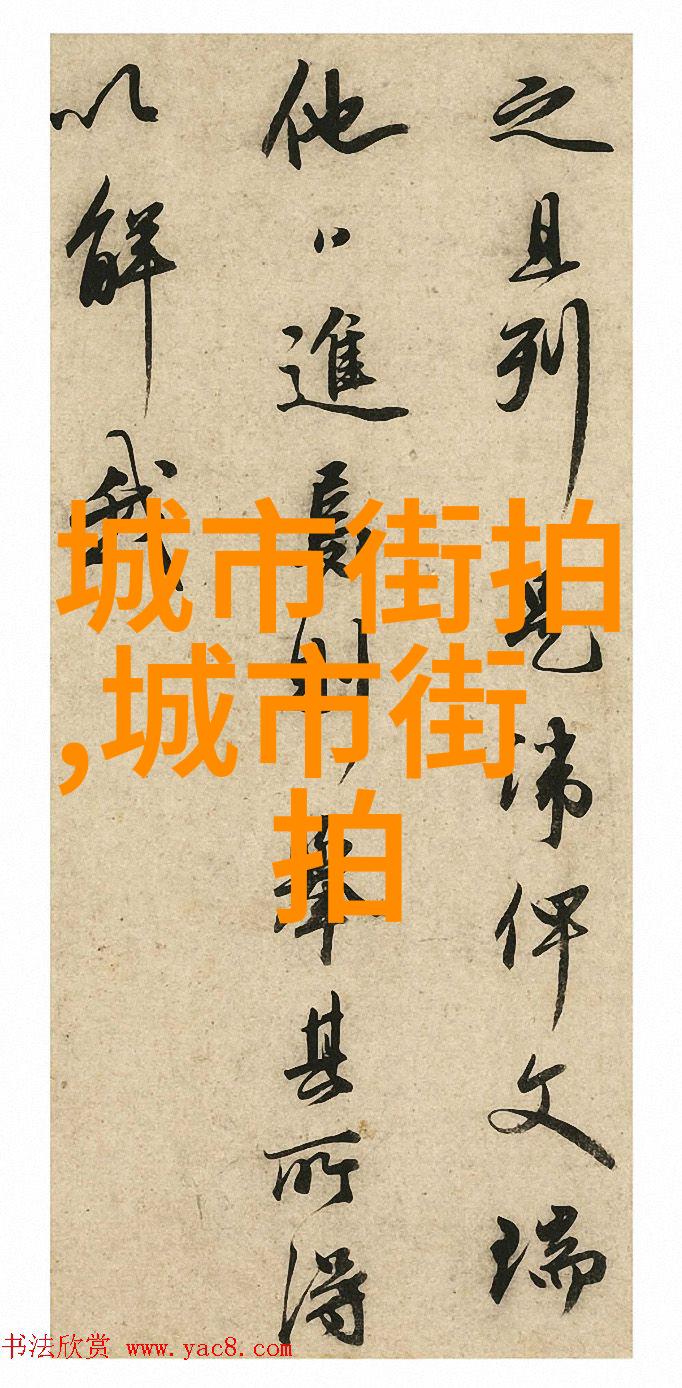 之且列俾文瑞
他進其所得
以解我
城市街拍
,城市街
拍
书法欣赏 www.yac8.com